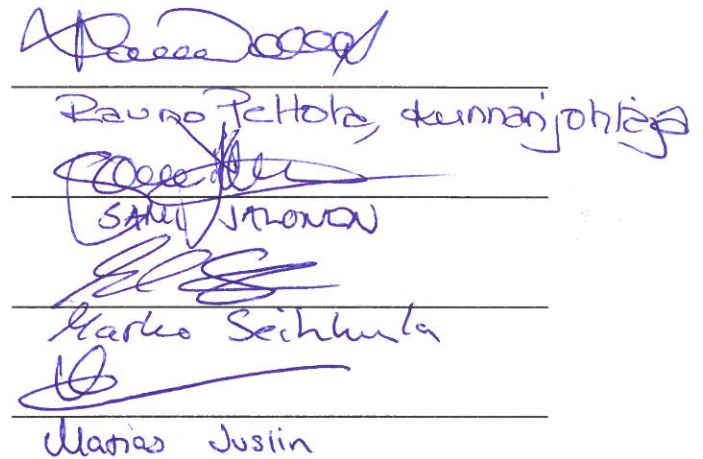 Rauno Peltola, kunnanjohtaja
SAMI JALONEN
Marko Seikkula
Matias Juslin